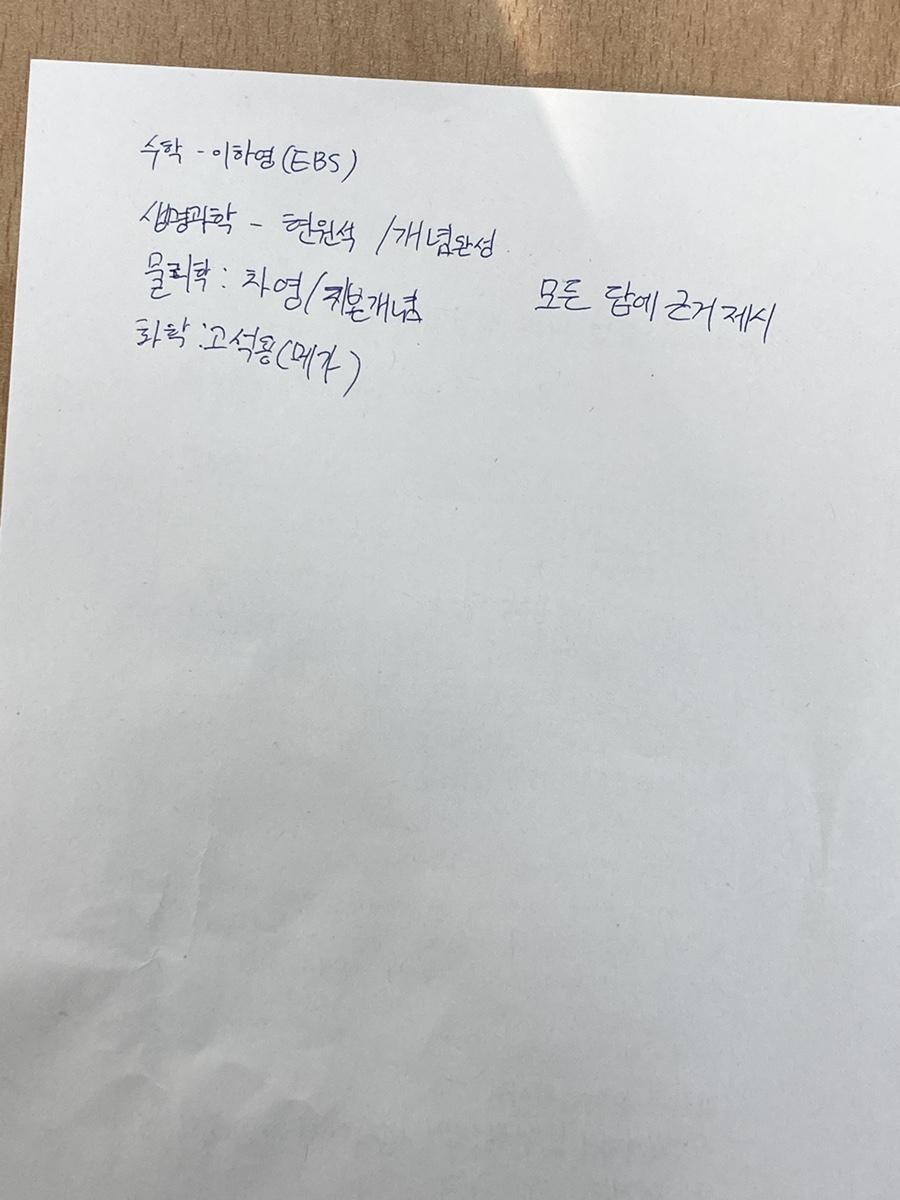 수학 - 이하영(EBS)
생명과학 - 현원석 /개념완성
물리학 : 차영/기본개념
모든 답에 근거 제시
화학 : 고석용(메가)